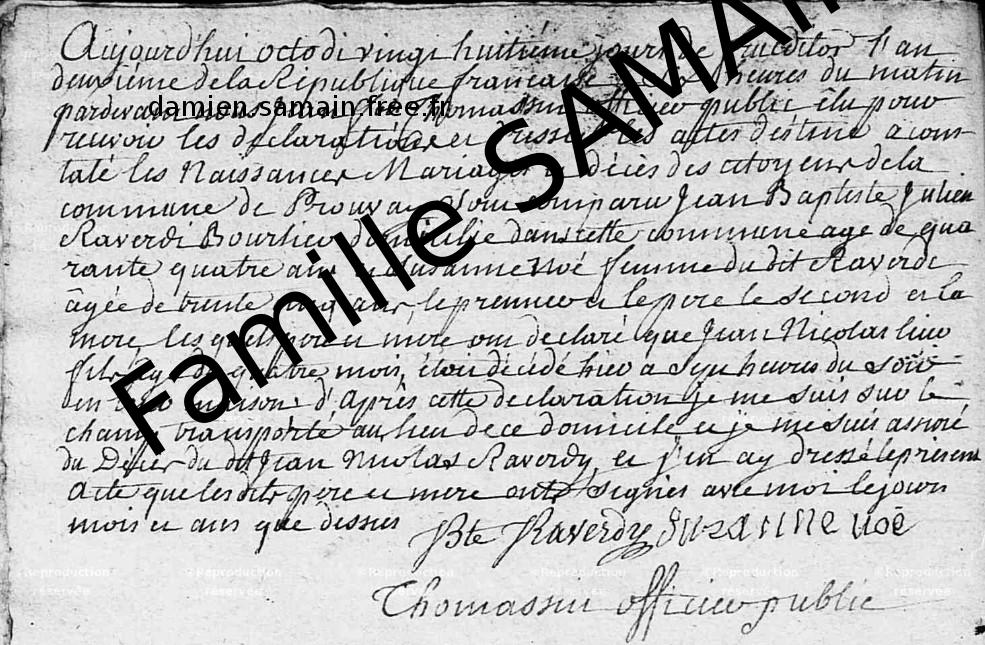 Aujourd'hui octodi vingt huitième jours de l'an
deuxième de la République française heures du matin
pardevant Thomassin officier public élu pour
recevoir les déclarations et les actes destiné a cons
taté les Naissances Mariages et décès des citoyens de la
commune de Prouvay Sont comparu Jean Baptiste Julien
Raverdi Bourlier domicilié dans cette commune age de qua
rante quatre ans et Susanne Noé femme du dit Raverdi
âgée de trente ans, le premier et le pere le second et la
mere, les quels pere et mere ont declaré que Jean Nicolas leur
fils agé de quatre mois, étoit décédé hier a sept heures du soir
en maison d'Après cette declaration je me suis sur le
champ transporté au lieu de ce domicile et je me suis assuré
du Décès du dit Jean Nicolas Raverdy, et j'en ay dressé le présent
Acte que lesdits pere et mere ont signés avec moi le jour
mois et ans que dessus
Bte Raverdy Suzanne noé
Thomassin officier public
Famille SAMAIN
damien.samain.free.fr
©Reproduction réservée